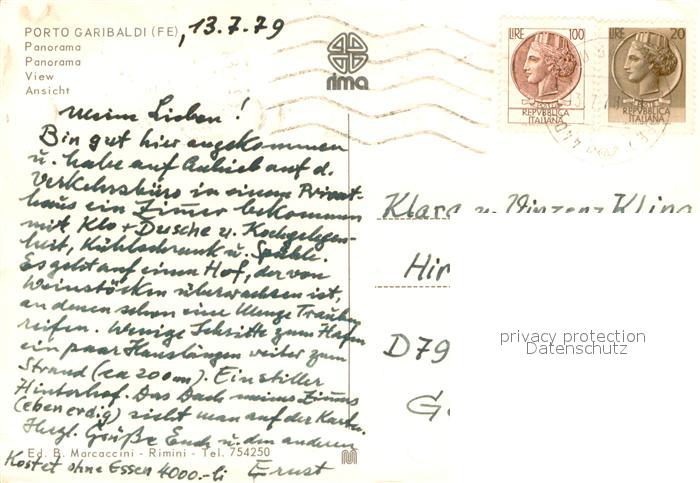 PORTO GARIBALDI (FE), 13.7.79
Panorama
Panorama
View
Ansicht
rima
LIRE 100
REPVBBLICA
ITALIANA
LIRE 20
REPVBBLICA
ITALIANA
Meine Lieben!
Bin gut hier angekommen
u. habe auf Anhieb auf d.
Verkehrsbüro in einem Privat-
haus ein Zimmer bekommen
mit Klo + Dusche u. Kochgelegen-
heit, Kühlschrank u. Spühle.
Es geht auf einen Hof, der von
Weinstöcken überwachsen ist,
an denen schon eine Menge Trauben
reifen. Wenige Schritte zum Hafen
ein paar Hauslängen weiter zum
Strand (ca 200m). Ein stiller
Hinterhof. Das Dach meines Zimmers
(ebenerdig) sieht man auf der Karte.
Herzl. Grüße Euch u. den anderen
Ernst
Kostet ohne Essen 4000.- li
Klara u. Vinzenz Kling
Hir
D79
G
privacy protection
Datenschutz
Ed. B. Marcaccini - Rimini - Tel. 754250